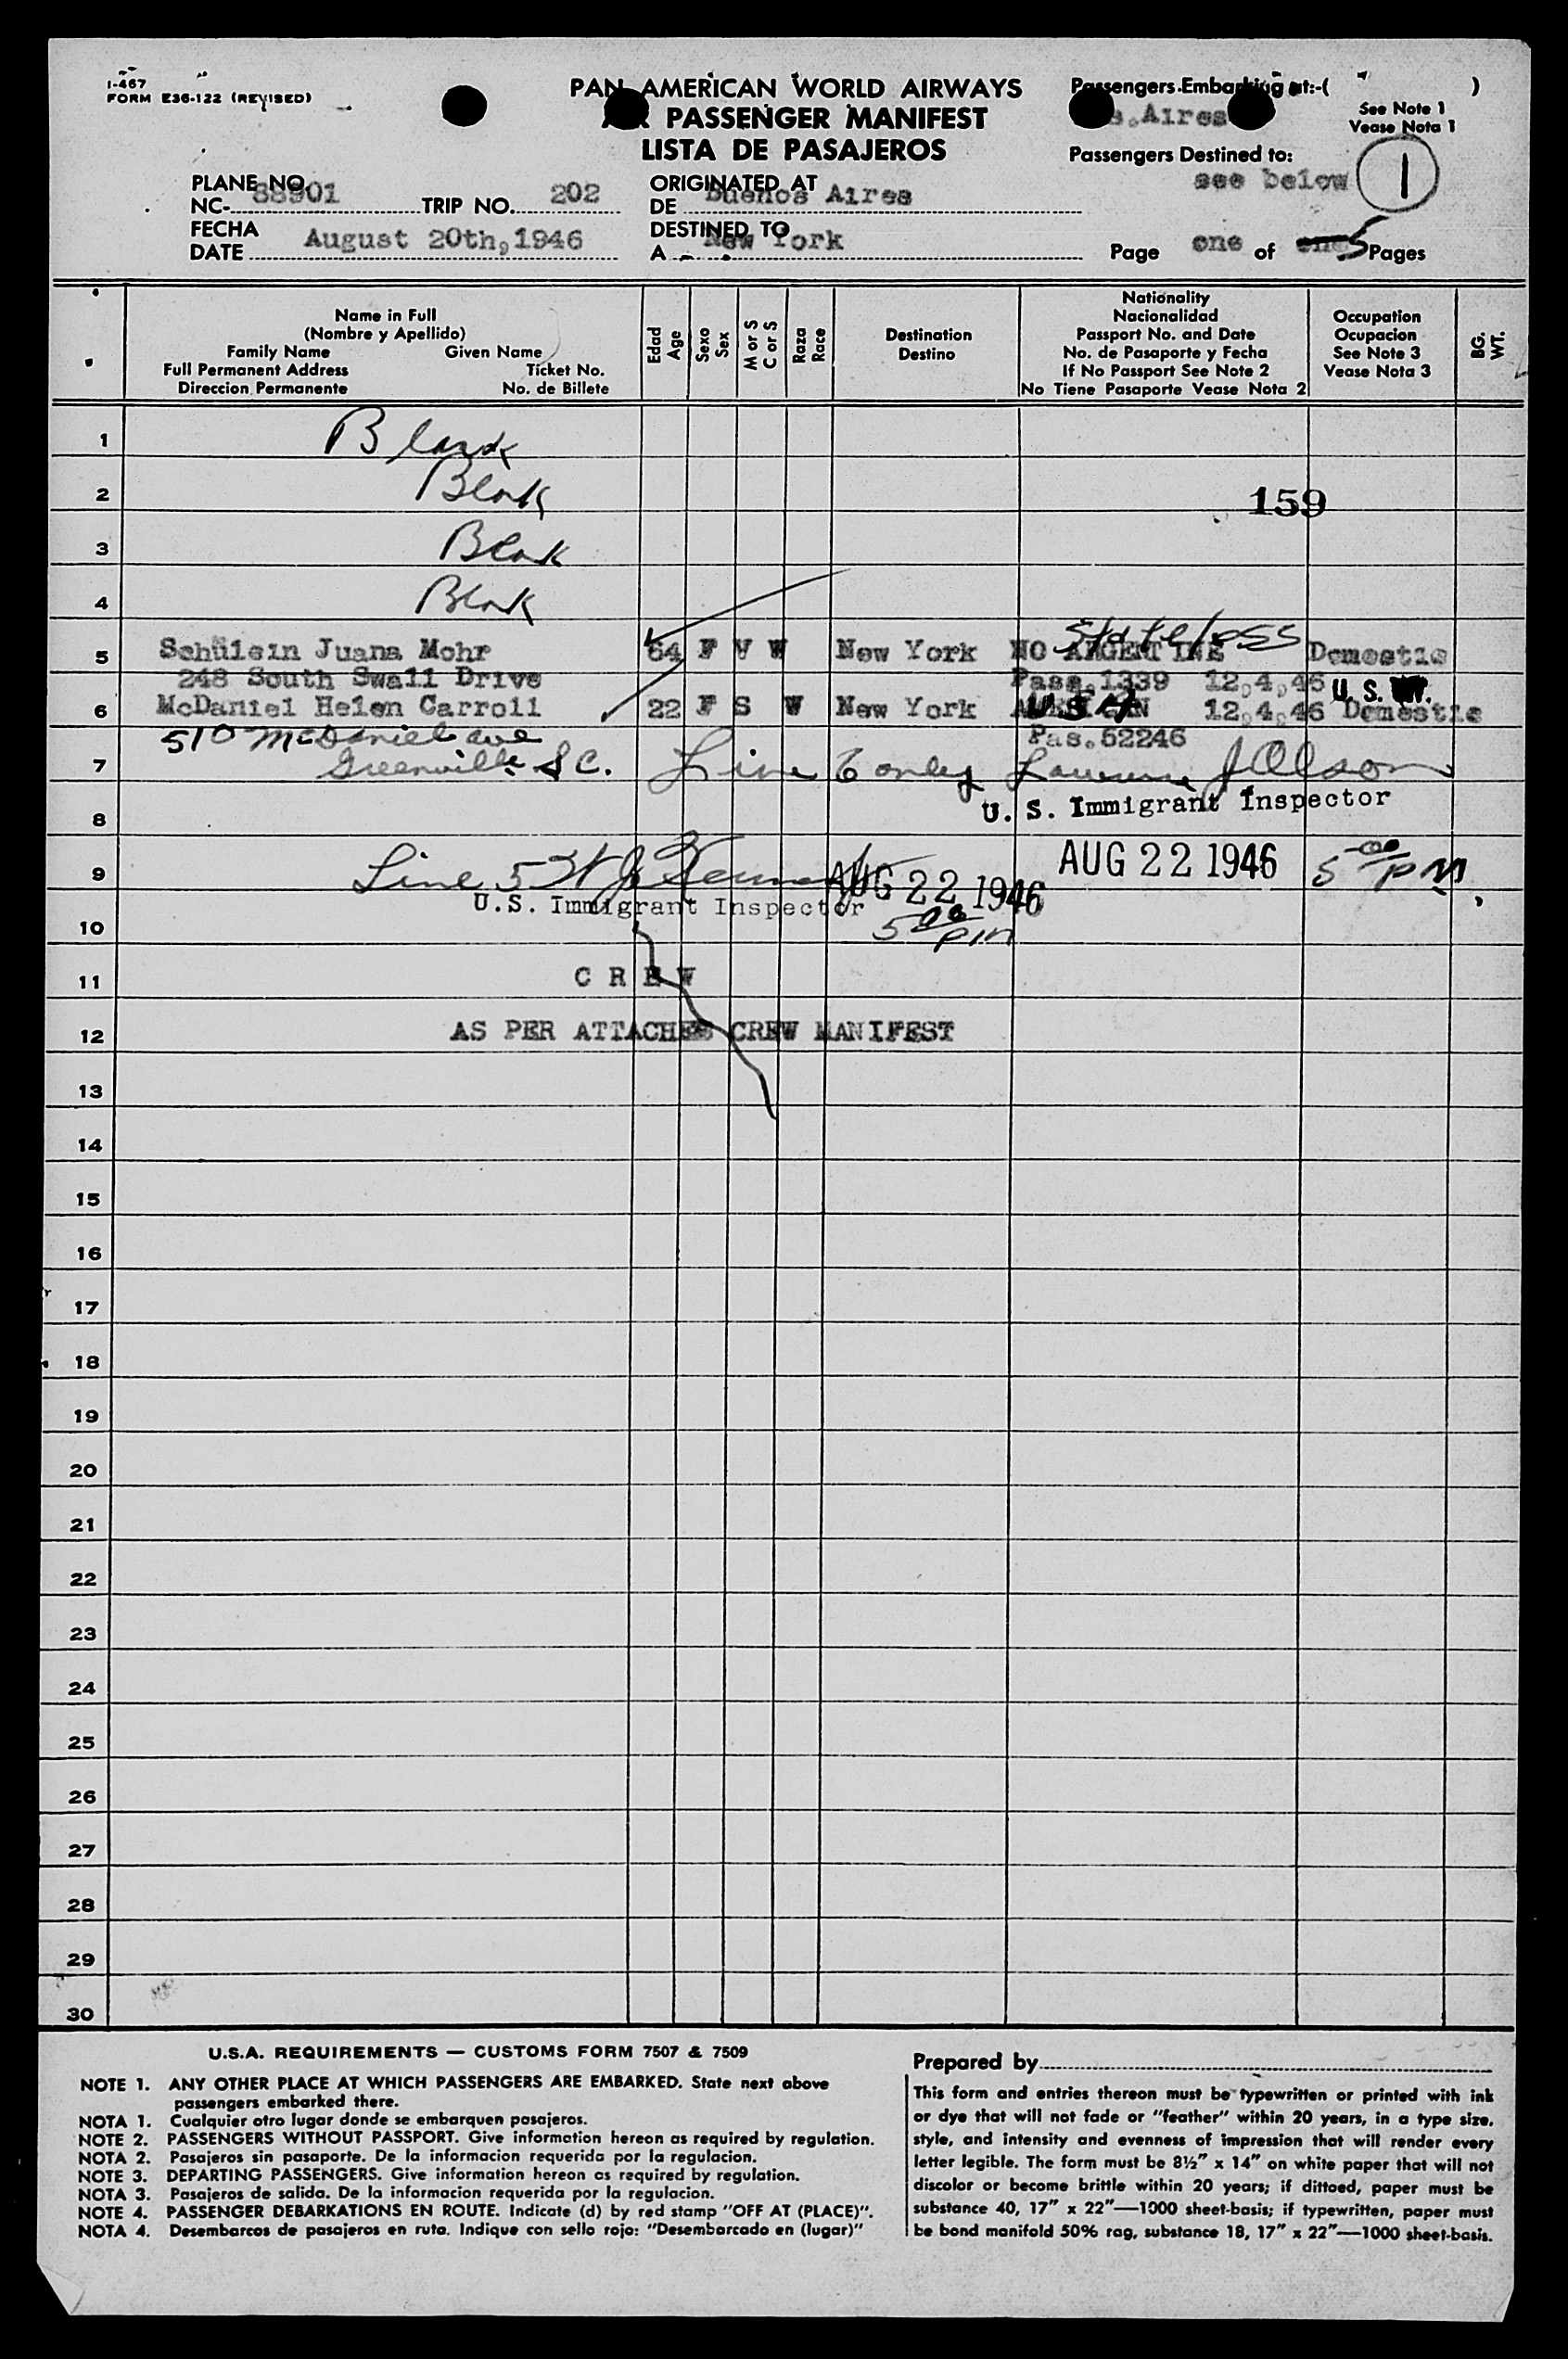 I-467
FORM E36-122 (REVISED)
PAN AMERICAN WORLD AIRWAYS
PASSENGER MANIFEST
LISTA DE PASAJEROS
Passengers Embarking at:-( )
s.Aires
See Note 1
Vease Nota 1
Passengers Destined to:
see below
1
PLANE NO.
NC- 88901 TRIP NO. 202
ORIGINATED AT
DE Buenos Aires
FECHA
DATE August 20th,1946
DESTINED TO
A New York
Page one of 5 Pages
Name in Full
(Nombre y Apellido)
Family Name Given Name
Full Permanent Address Ticket No.
Direccion Permanente No. de Billete
Edad
Age
Sexo
Sex
M or S
C or S
Raza
Race
Destination
Destino
Nationality
Nacionalidad
Passport No. and Date
No. de Pasaporte y Fecha
If No Passport See Note 2
No Tiene Pasaporte Vease Nota 2
Occupation
Ocupacion
See Note 3
Vease Nota 3
BG.
WT.
1 Blank
2 Blank
159
3 Blank
4 Blank
Stateless
5 Schülein Juana Mohr 64 F V W New York NO ARGENTINE Domestic
248 South Swall Drive Pass.1339 12,4,46 U. S.
6 McDaniel Helen Carroll 22 F S W New York USA 12,4,46 Domestic
510 McDaniel ave Pas.52246
7 Greenville S C. Line 6 only Lawrence J Olson
U. S. Immigrant Inspector
8
9 Line 5 AUG 22 1946 AUG 22 1946 5 00 PM
U.S. Immigrant Inspector
5 00 pm
10
11 C R E W
12 AS PER ATTACHED CREW MANIFEST
13
14
15
16
17
18
19
20
21
22
23
24
25
26
27
28
29
30
U.S.A. REQUIREMENTS — CUSTOMS FORM 7507 & 7509
NOTE 1. ANY OTHER PLACE AT WHICH PASSENGERS ARE EMBARKED. State next above
passengers embarked there.
NOTA 1. Cualquier otro lugar donde se embarquen pasajeros.
NOTE 2. PASSENGERS WITHOUT PASSPORT. Give information hereon as required by regulation.
NOTA 2. Pasajeros sin pasaporte. De la informacion requerida por la regulacion.
NOTE 3. DEPARTING PASSENGERS. Give information hereon as required by regulation.
NOTA 3. Pasajeros de salida. De la informacion requerida por la regulacion.
NOTE 4. PASSENGER DEBARKATIONS EN ROUTE. Indicate (d) by red stamp "OFF AT (PLACE)".
NOTA 4. Desembarcos de pasajeros en ruta. Indique con sello rojo: "Desembarcado en (lugar)"
Prepared by
This form and entries thereon must be typewritten or printed with ink
or dye that will not fade or "feather" within 20 years, in a type size,
style, and intensity and evenness of impression that will render every
letter legible. The form must be 8½" x 14" on white paper that will not
discolor or become brittle within 20 years; if dittoed, paper must be
substance 40, 17" x 22"—1000 sheet-basis; if typewritten, paper must
be bond manifold 50% rag, substance 18, 17" x 22"—1000 sheet-basis.